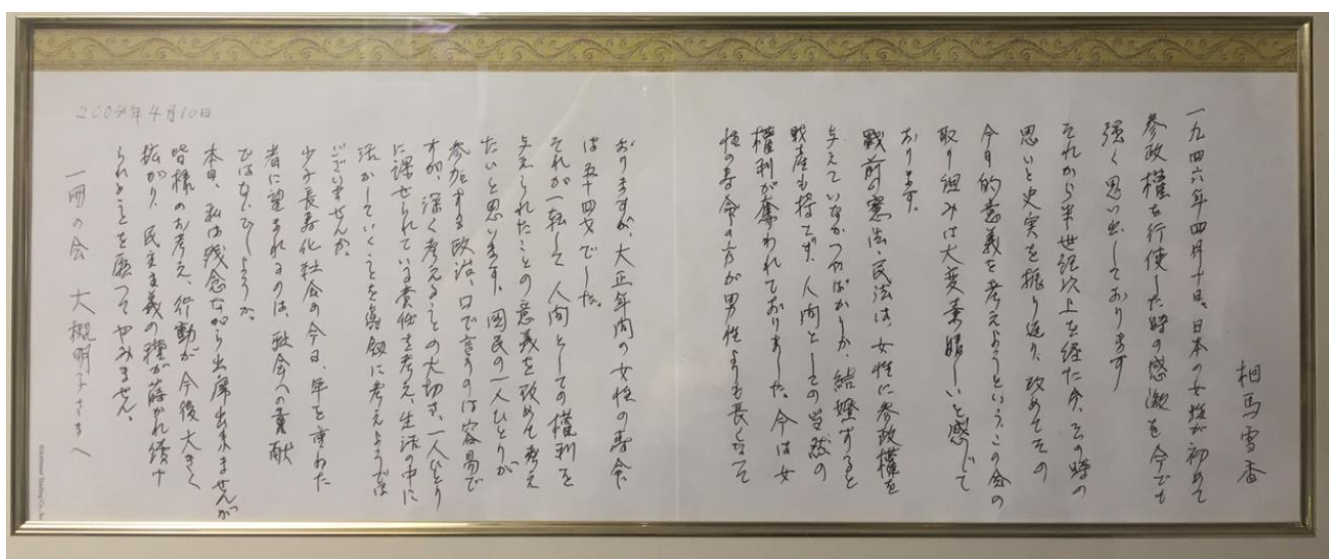 相馬雪香
一九四六年四月十日、日本の女性が初めて
参政権を行使した時の感激を今でも
強く思い出しております
それから半世紀以上を経た今、その時の
思いと史実を振り返り、改めてその
今日的意義を考えようという、この会の
取り組みは大変素晴しいと感じて
おります。
戦前の憲法、民法は、女性に参政権を
与えていなかったばかりか、結婚すると
財産も持てず、人間としての当然の
権利が奪われておりました。今は女
性の寿命の方が男性よりも長くなって
おりますが、大正年間の女性の寿命
は五十四才でした。
それが一転して人間としての権利を
与えられたことの意義を改めて考え
たいと思います。国民の一人ひとりが
参加する政治、口で言うのは容易で
すが、深く考えることの大切さ、一人ひとり
に課せられている責任を考え、生活の中に
活かしていくことを真剣に考えようでは
ございませんか。
少子長寿化社会の今日、年を重ねた
者に望まれるのは、社会への貢献
ではないでしょうか。
本日、私は残念ながら出席出来ませんが
皆様のお考え、行動が今後大きく
拡がり、民主主義の種が蒔かれ続け
られることを願ってやみません。
2004年4月10日
一冊の会 大槻明子さまへ